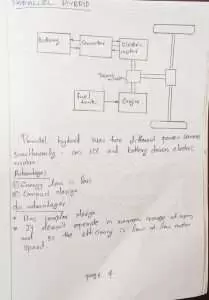 PARALLEL HYBRID
Battery
Converter
Electric
motor
Transmission
fuel
tank
Engine
Parallel hybrid uses two different power sources
simultaneously - an ICE and battery driven electric
motor.
Advantages
Energy loss is less
Compact design
disadvantages
* Has complex design
* It doesn't operate in range of rpm,
and so the efficiency is low at low motor
speed.
page 4